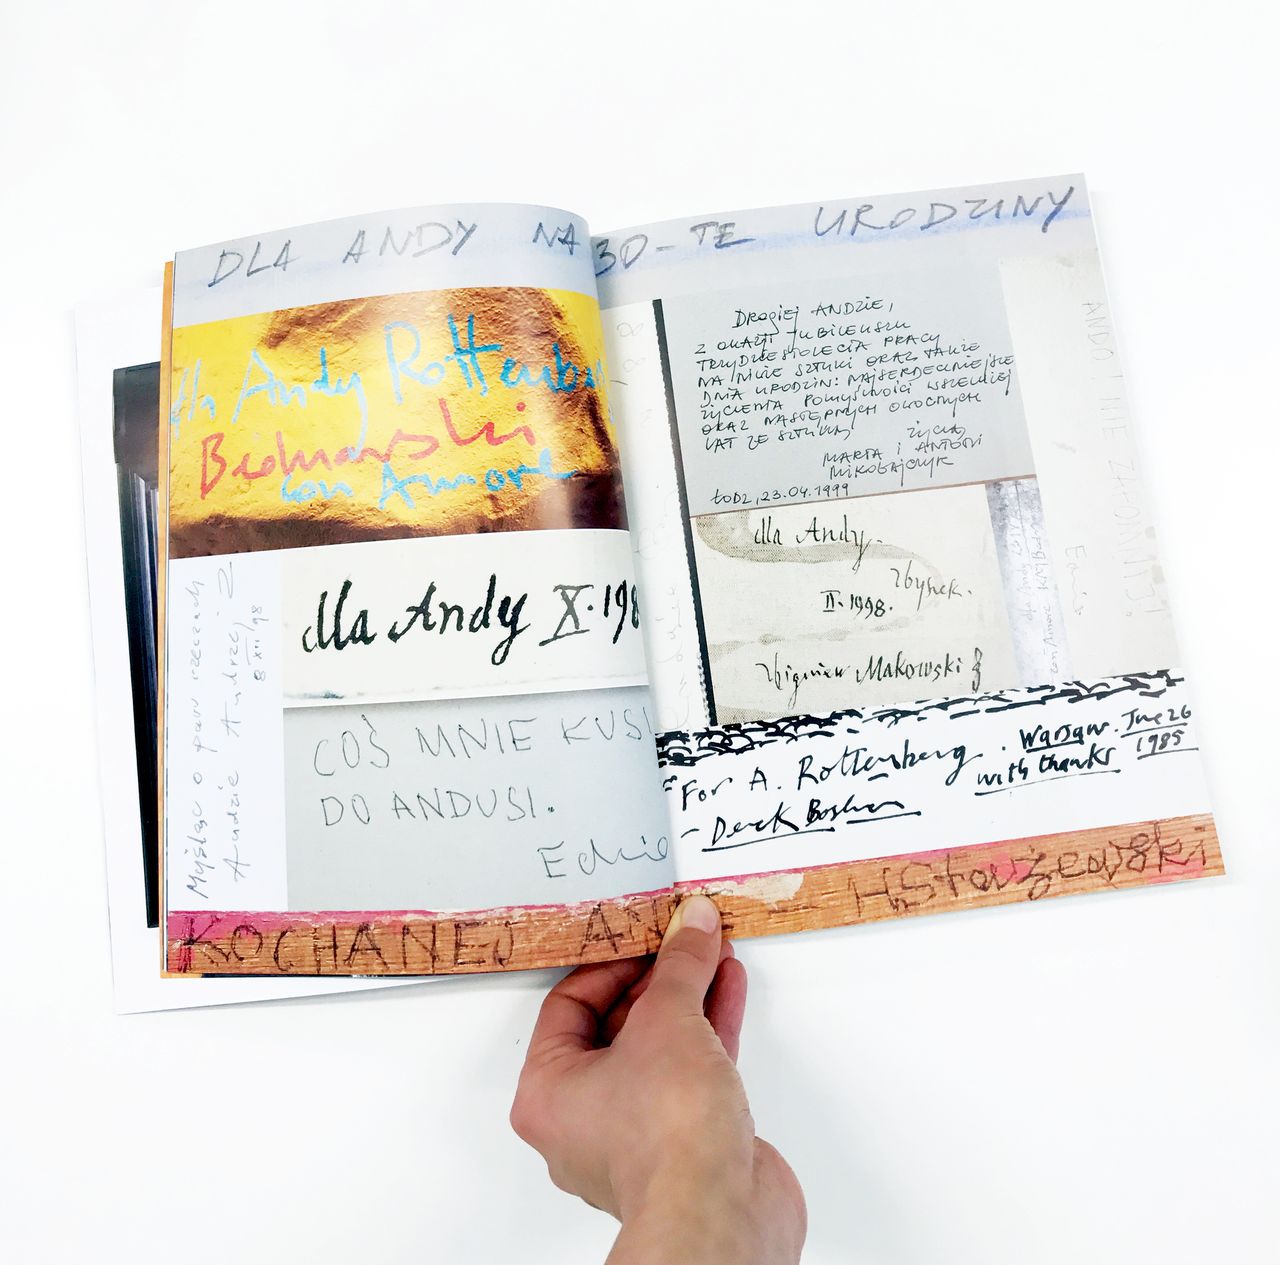 DLA ANDY NA 30-TE URODZINY
dla Andy Rottenb
Bednarski
con Amore
Myśląc o paru rzeczach
Andzie Andrzej
8 XII/98
dla Andy X.198
COŚ MNIE KUSI
DO ANDUSI.
Edzio
Drogiej ANDZIE,
Z OKAZJI JUBILEUSZU
TRZYDZIESTOLECIA PRACY
NA NIWIE SZTUKI ORAZ TAKŻE
DNIA URODZIN: NAJSERDECZNIEJSZE
ŻYCZENIA POMYŚLNOŚCI WSZELKIEJ
ORAZ NASTĘPNYCH OWOCNYCH
LAT ZE SZTUKĄ
życzą
MARIA i ANTONI
MIKOŁAJCZYK
ŁODZ, 23.04.1999
dla Andy.
Zbyszek.
II.1998.
Zbigniew Makowski
ANDO! NIE ZAPOMNIJ!
Edzio
con Amore
For A. Rottenberg. Warsaw. June 26
with thanks 1985
- Derek Boshier
KOCHANEJ ANDZIE - HStażewski